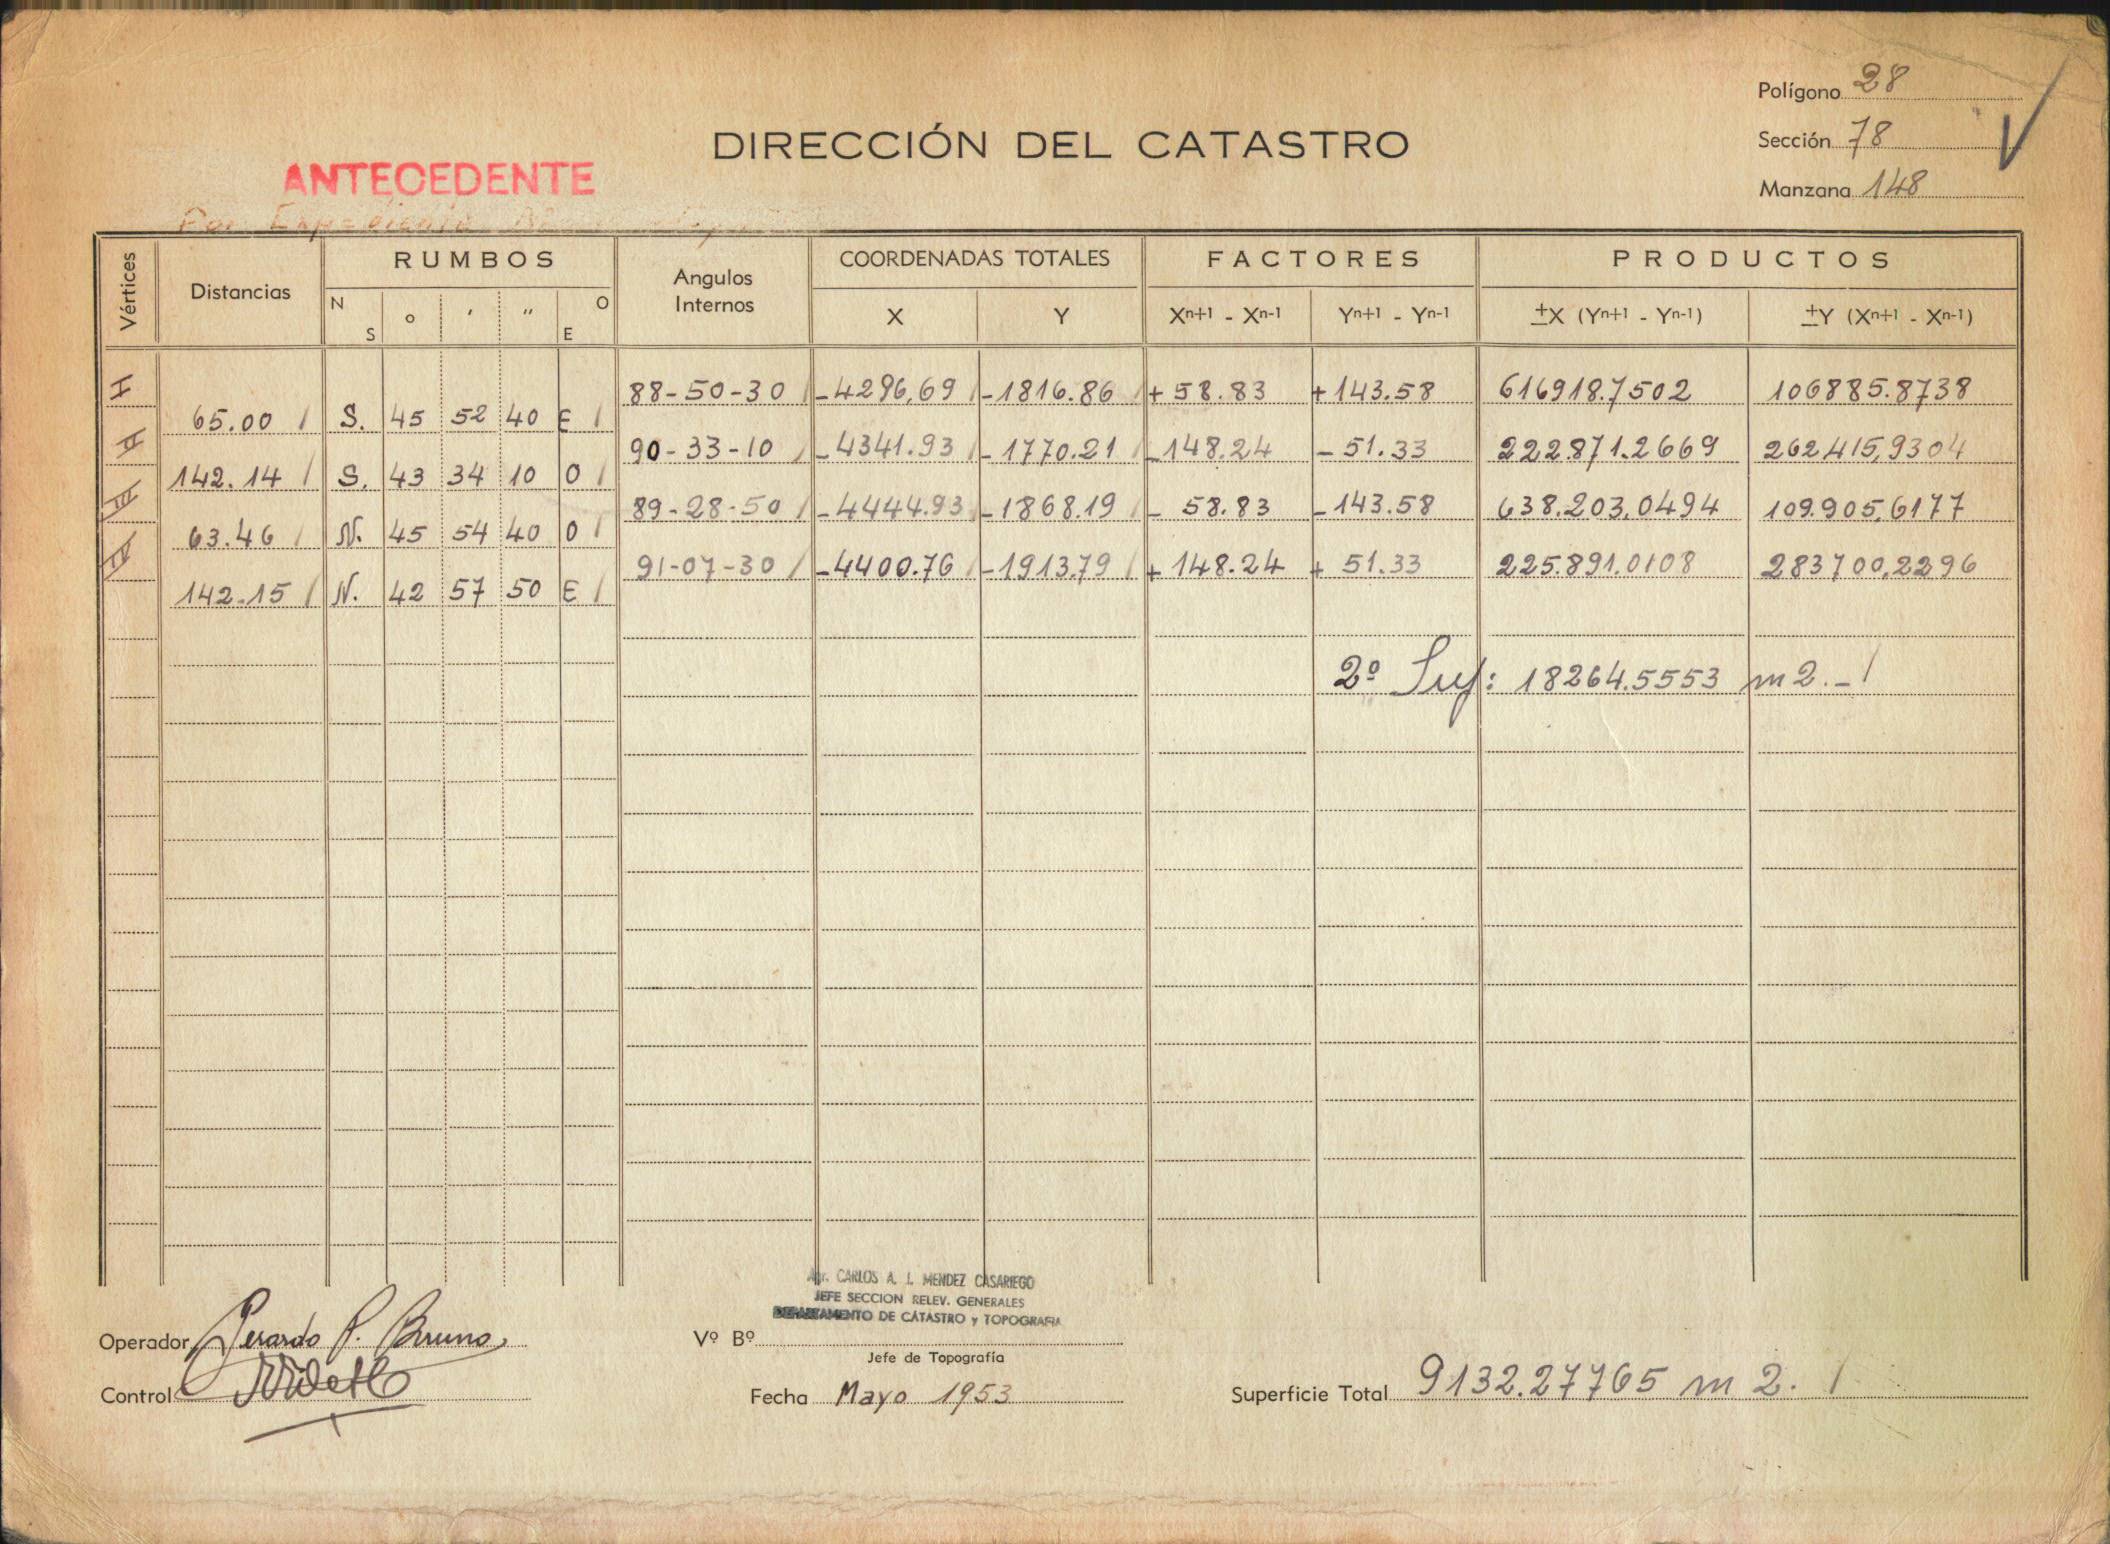 Polígono 28
DIRECCIÓN DEL CATASTRO
Sección 78
ANTECEDENTE
Manzana 148
Por Expediente
Vértices Distancias RUMBOS Angulos Internos COORDENADAS TOTALES FACTORES PRODUCTOS
N S ° ' " O E X Y Xn+1 - Xn-1 Yn+1 - Yn-1 ±X (Yn+1 - Yn-1) ±Y (Xn+1 - Xn-1)
I 88-50-30 -4296,69 -1816.86 +58.83 +143.58 616918.7502 106885.8738
65.00 S. 45 52 40 E
II 90-33-10 -4341.93 -1770.21 -148.24 -51.33 222.871.2669 262415,9304
142.14 S. 43 34 10 O
III 89-28-50 -4444.93 -1868.19 - 58.83 -143.58 638.203,0494 109.905,6177
63.46 N. 45 54 40 O
IV 91-07-30 -4400.76 -1913.79 +148.24 + 51.33 225.891.0108 283700,2296
142.15 N. 42 57 50 E
2º Sup: 18264.5553 m2.-
Agr. CARLOS A. I. MENDEZ CASARIEGO
JEFE SECCION RELEV. GENERALES
DEPARTAMENTO DE CATASTRO y TOPOGRAFIA
Operador Gerardo P. Bruno
Vº Bº
Jefe de Topografía
Control
Fecha Mayo 1953
Superficie Total 9132.27765 m2.